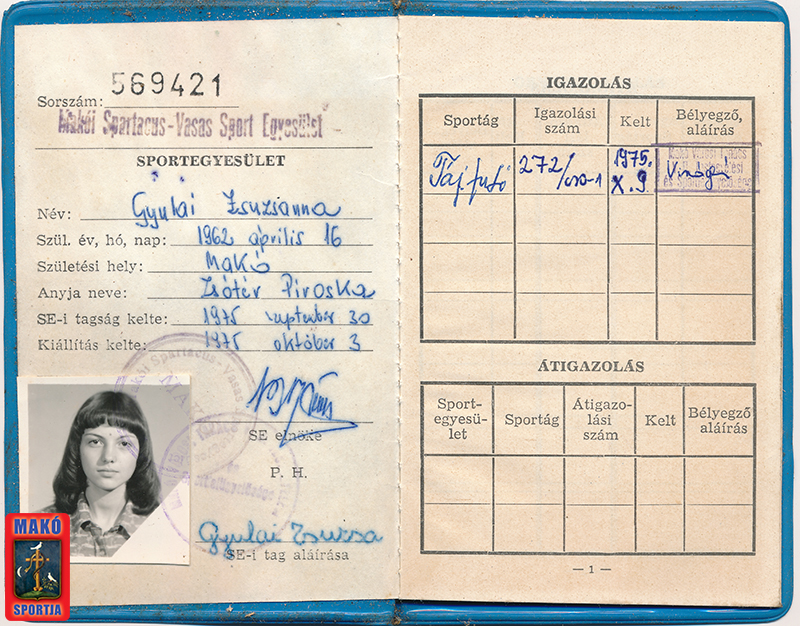 569421
Sorszám:
Makói Spartacus-Vasas Sport Egyesület
SPORTEGYESÜLET
Név: Gyulai Zsuzsianna
Szül. év, hó, nap: 1962 április 16
Születési hely: Makó
Anyja neve: Zsótér Piroska
SE-i tagság kelte: 1975 szeptember 30
Kiállítás kelte: 1975 október 3
Makói Spartacus-Vasas
SE elnöke
P. H.
Gyulai Zsuzsa
SE-i tag aláírása
MAKÓ
SPORTJA
IGAZOLÁS
Sportág
Igazolási szám
Kelt
Bélyegző, aláírás
Tájfutó
272/
1975. X. 9.
ÁTIGAZOLÁS
Sport-
egyesü-
let
Sportág
Átigazo-
lási
szám
Kelt
Bélyegző
aláírás
— 1 —